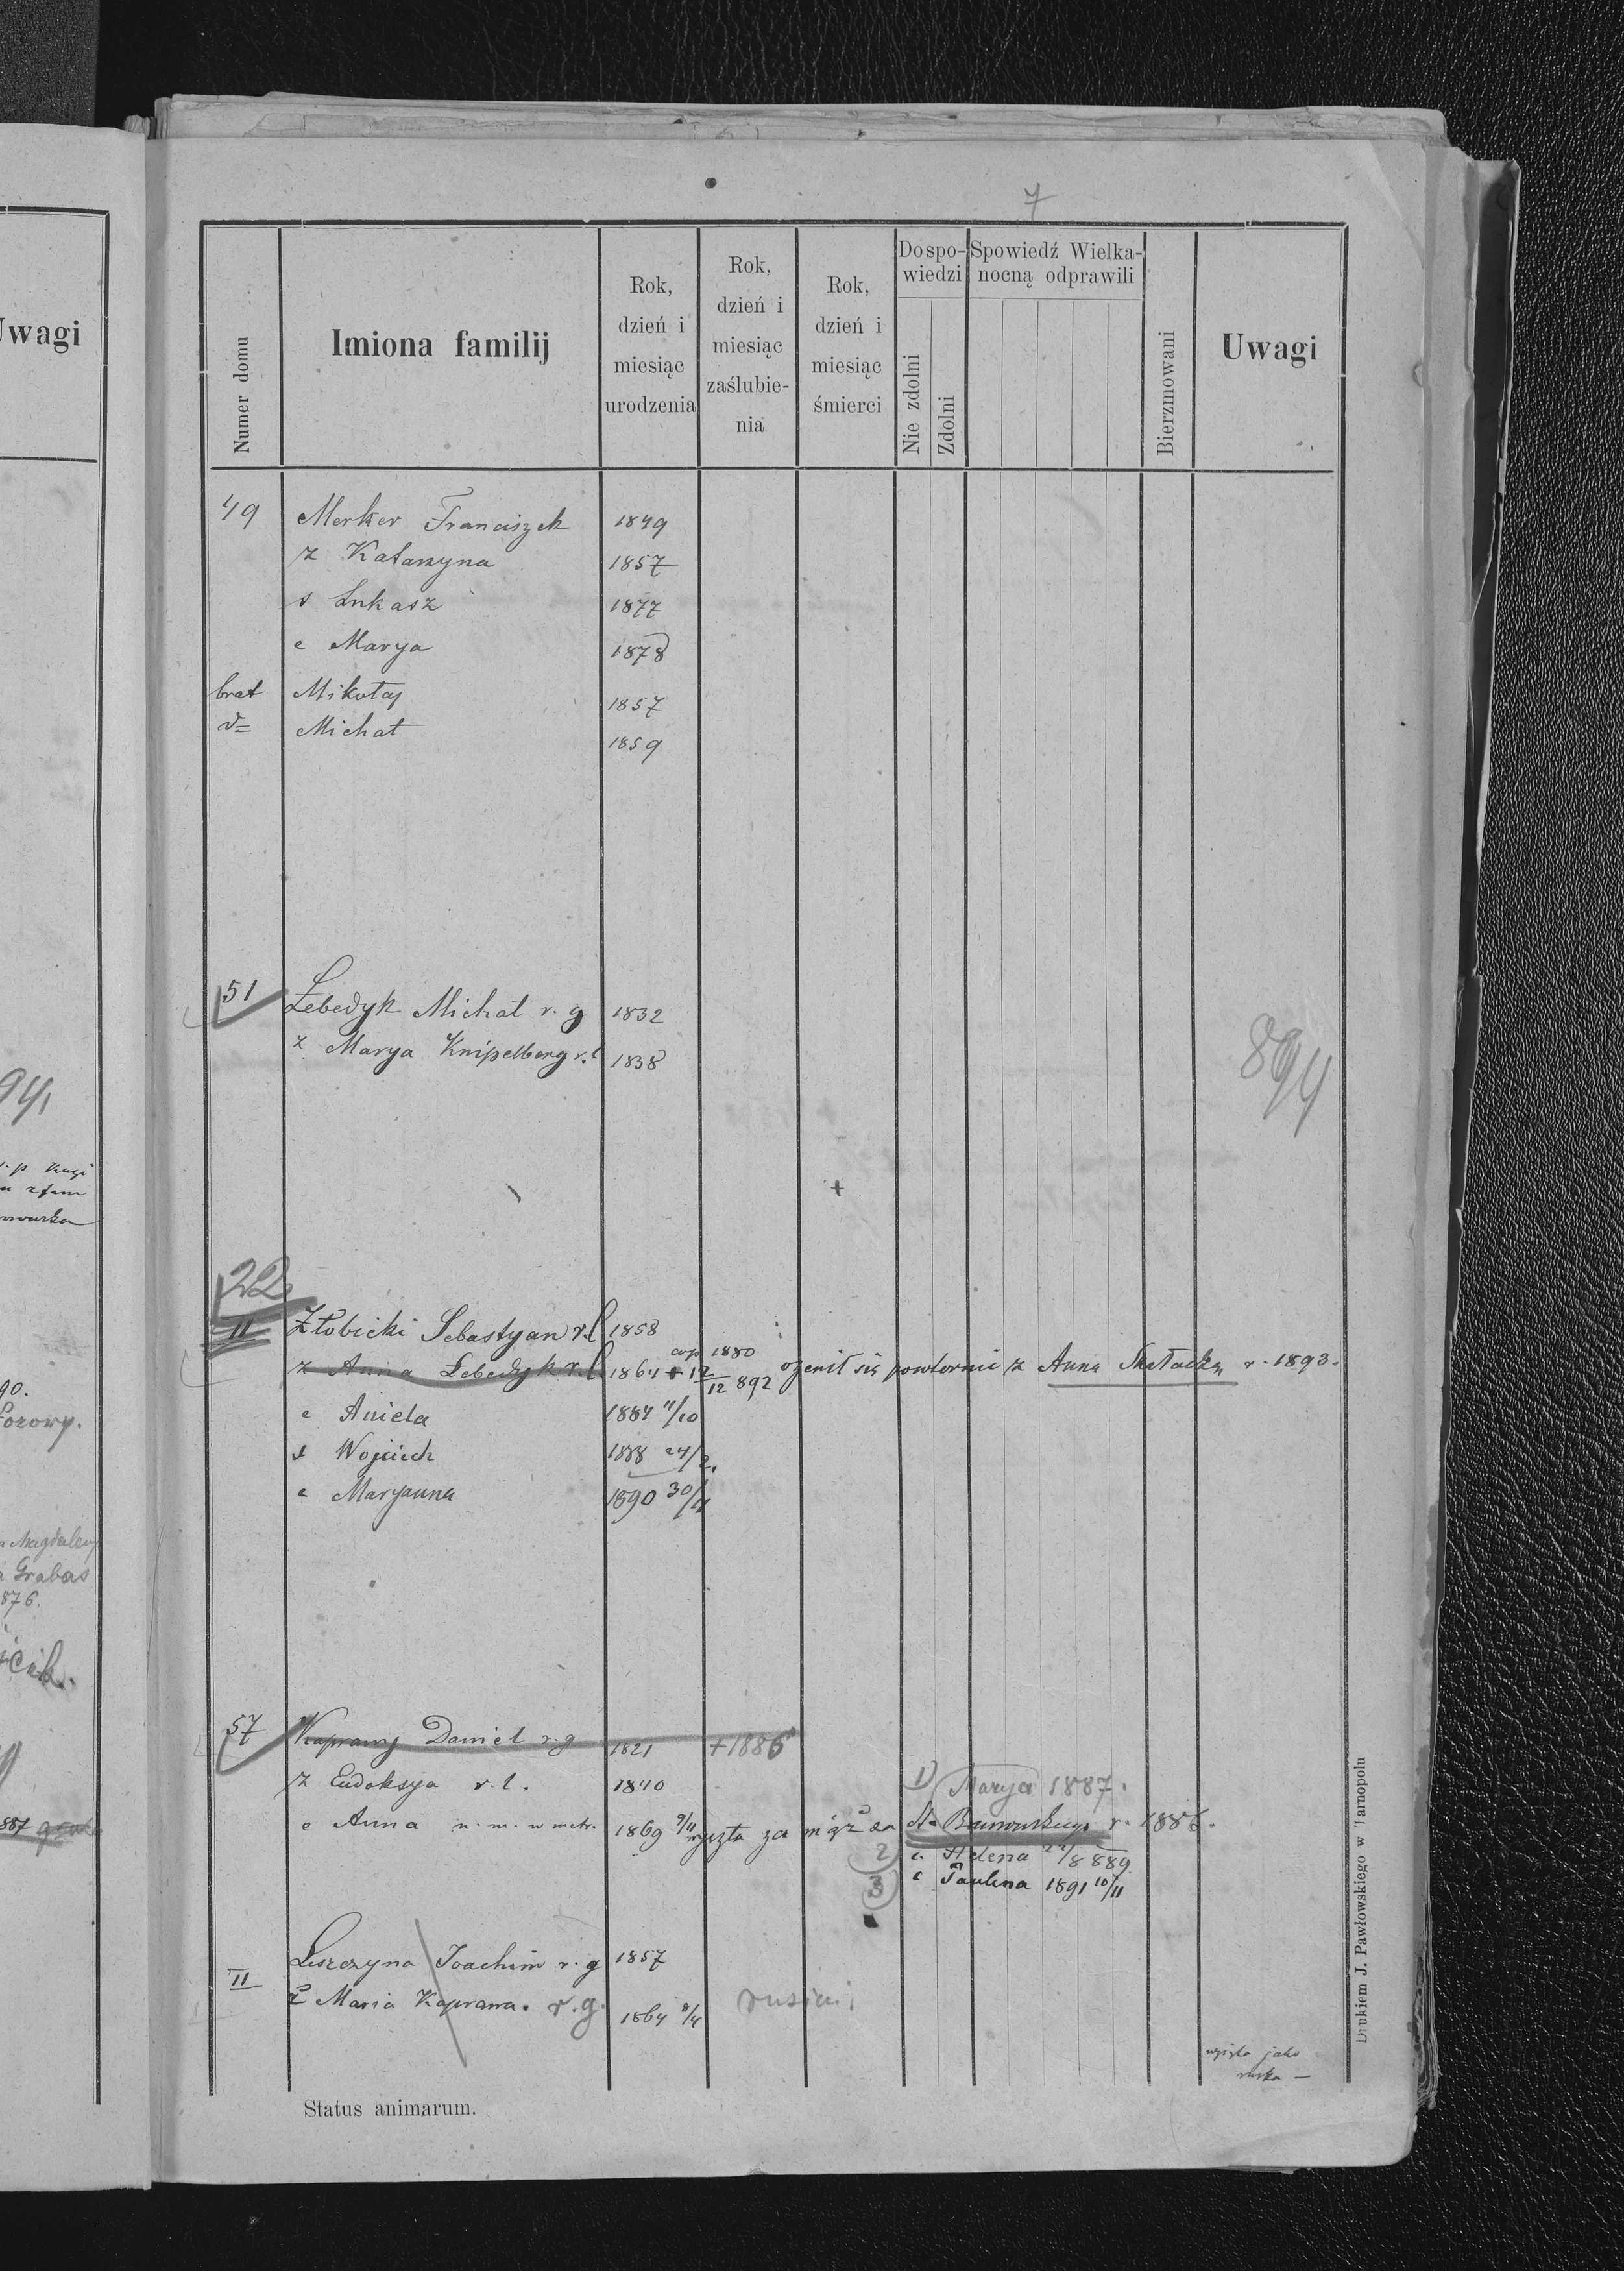 7
Numer domu
Imiona familij
Rok,
dzień i
miesiąc
urodzenia
Rok,
dzień i
miesiąc
zaślubie-
nia
Rok,
dzień i
miesiąc
śmierci
Do spo-
wiedzi
Nie zdolni
Zdolni
Spowiedź Wielka-
nocną odprawili
Bierzmowani
Uwagi
49 Merker Franciszek 1849
ż Katarzyna 1857
s Łukasz 1877
c Marya 1878
brat Mikołaj 1857
d= Michał 1859
51 Łebedyk Michał r. g 1832
ż Marya Knipelberg r. l 1838
894
22
II Złobicki Sebastyan r. l 1858
cop 1880
ż Anna Łebedyk r. l. 1864 + 12/12 892 ożenił się powtornie z Anną Skałacką r. 1893.
c Aniela 1884 11/10
s Wojciech 1888 24/2.
c Maryanna 1890 30/11
57 Kaprawy Daniel r. g 1821 +1886
ż Eudoksya r. l. 1840
1) Marya 1887.
c Anna n. m. w metr. 1869 9/11 wyszła za mąż za r. 1886.
2 c. Helena 22/8 889
3 c Paulina 1891 10/11
II Leszczyna Joachim r. g 1857
ż Maria Kaprawa. r. g. 1864 8/4 rusini
jako
ruska —
Status animarum.
Drukiem J. Pawłowskiego w Tarnopolu
Uwagi
94,
90.
Magdaleny
Grabas
876.
887